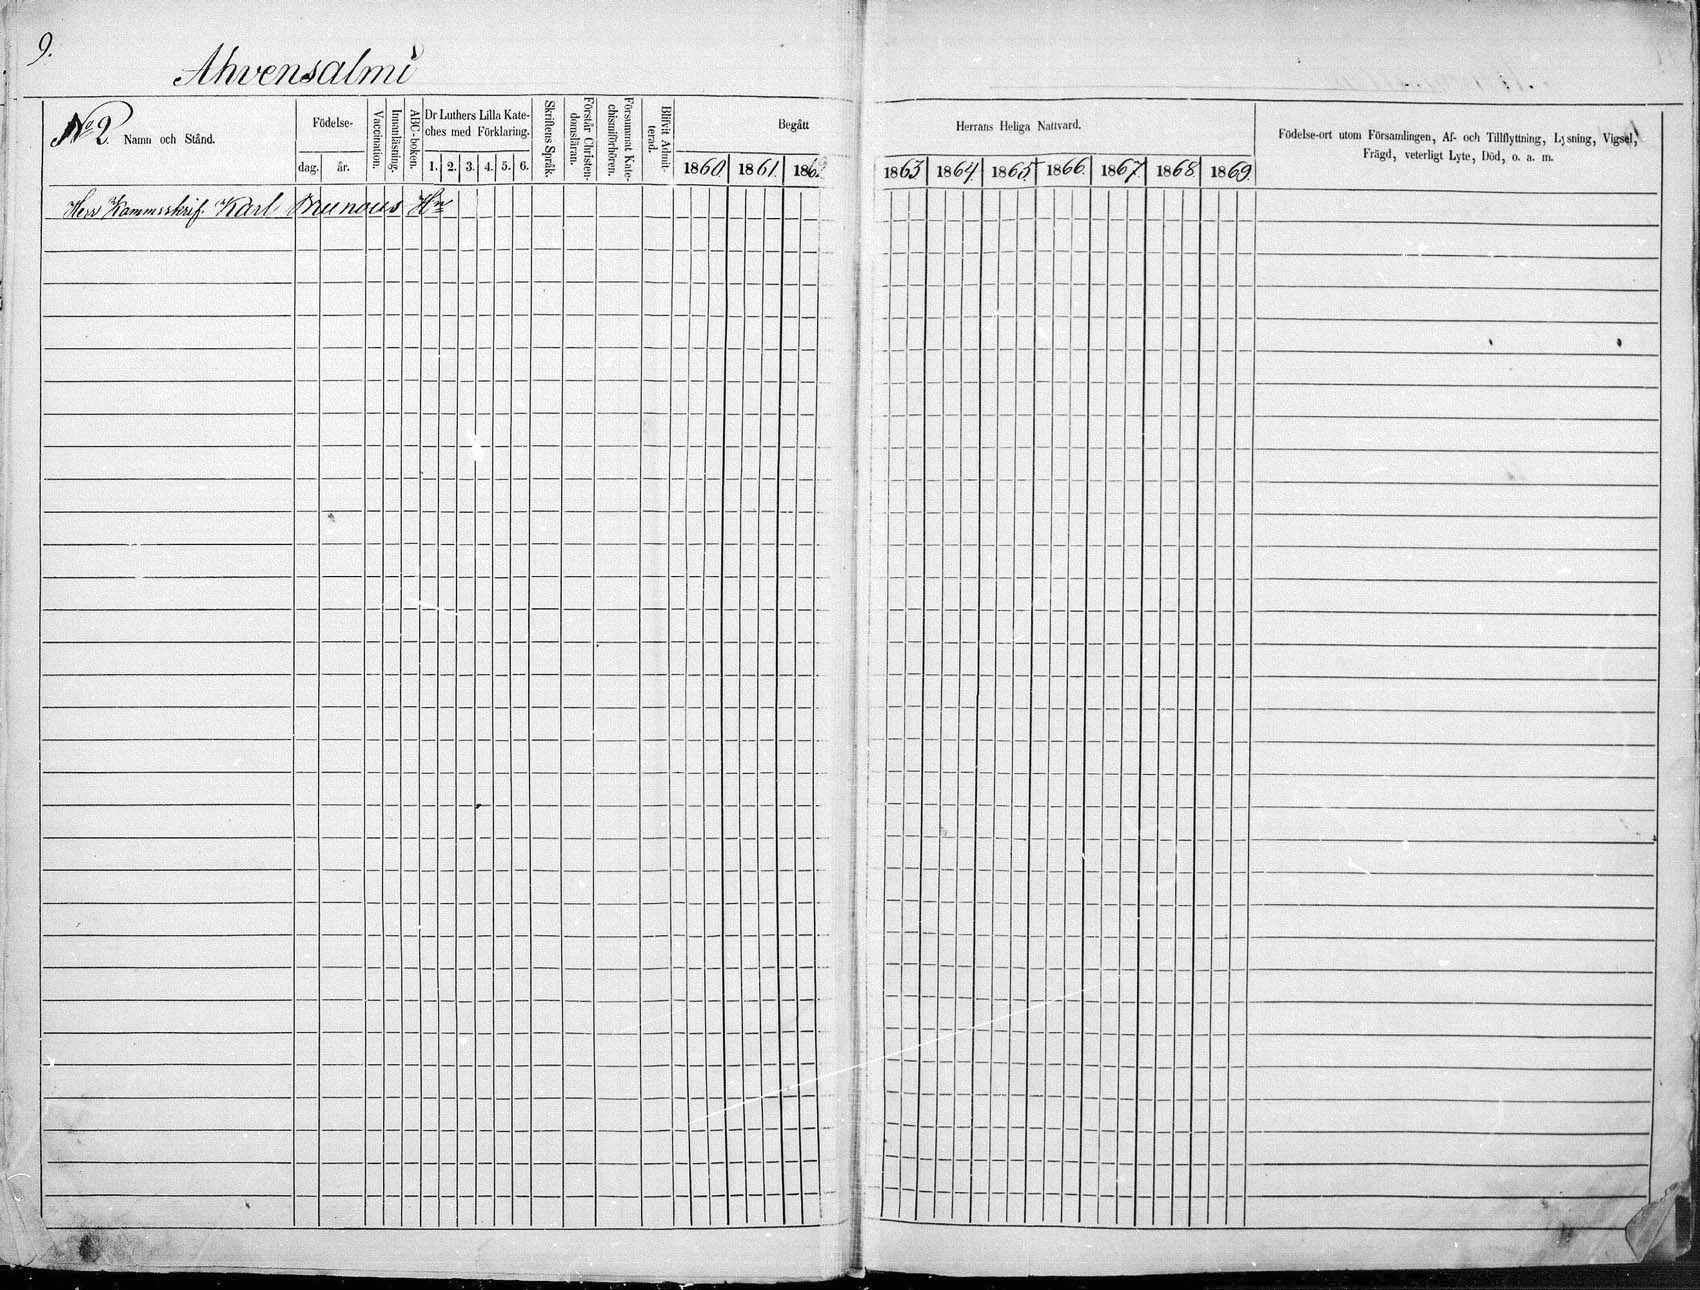 9.
Ahvensalmi
No 2.
Namn och Stånd.
Födelse-
dag.
år.
Vaccination.
Innanläsning.
ABC-boken.
Dr Luthers Lilla Kate-
ches med Förklaring.
1. 2. 3. 4. 5. 6.
Skriftens Språk.
Förstår Christen-
domsläran.
Försummat Kate-
chismiförhören.
Blifvit Admit-
terad.
Begått
1860 1861. 1862
Herrans Heliga Nattvard.
1863 1864. 1865. 1866. 1867. 1868. 1869.
Födelse-ort utom Församlingen, Af- och Tillflyttning, Lysning, Vigsel,
Frägd, veterligt Lyte, Död, o. a. m.
Herr Kammarskrif. Karl Brunous Hn